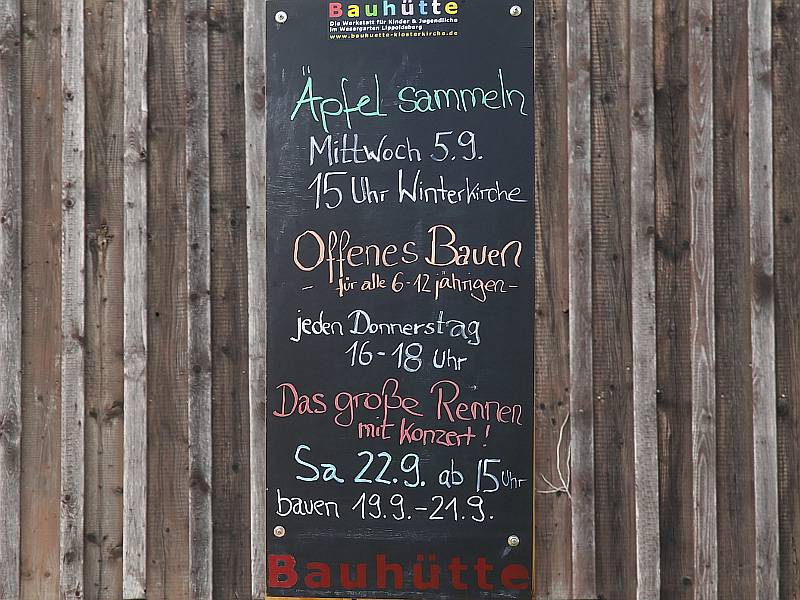 Bauhütte
Die Werkstatt für Kinder & Jugendliche
im Wesergarten Lippoldsberg
www.bauhuette-klosterkirche.de
Äpfel sammeln
Mittwoch 5.9.
15 Uhr Winterkirche
Offenes Bauen
- für alle 6-12 jährigen -
jeden Donnerstag
16-18 Uhr
Das große Rennen
mit Konzert!
Sa 22.9. ab 15 Uhr
bauen 19.9.-21.9.
Bauhütte